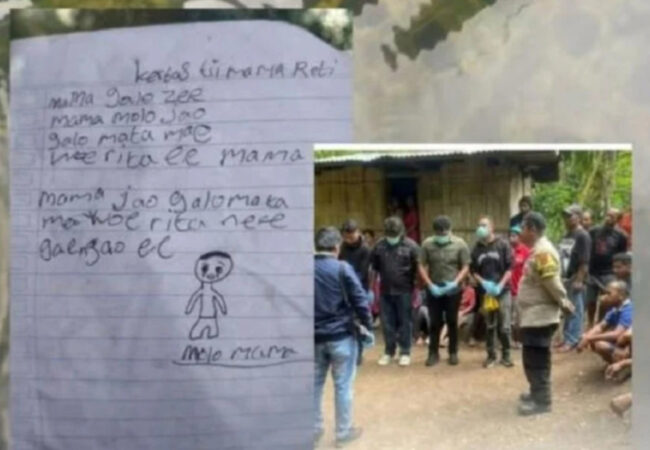 kertas tii mama Reti
mama galo zee
mama molo jao
galo mata mae
rita ee mama
mama jao galo mata
mae woe rita nee
gae ngao ee
molo mama